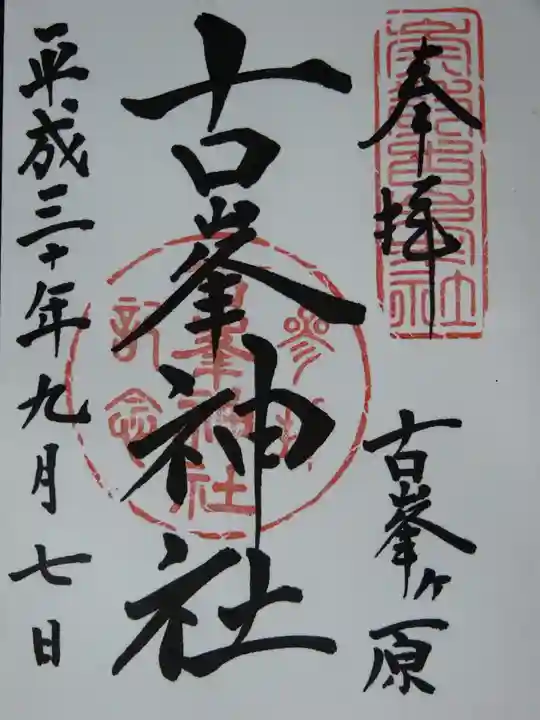 奉拝
古峯ヶ原
古峯神社
平成三十年九月七日
参拝
古峯神社
記念